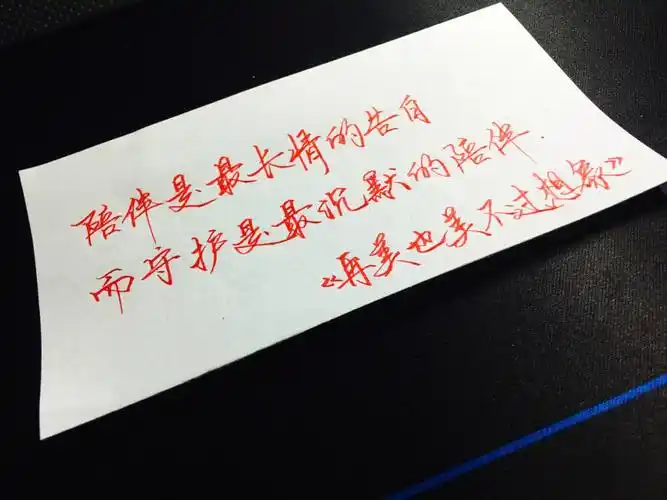 陪伴是最长情的告白
而守护是最沉默的陪伴
《再美也美不过想象》